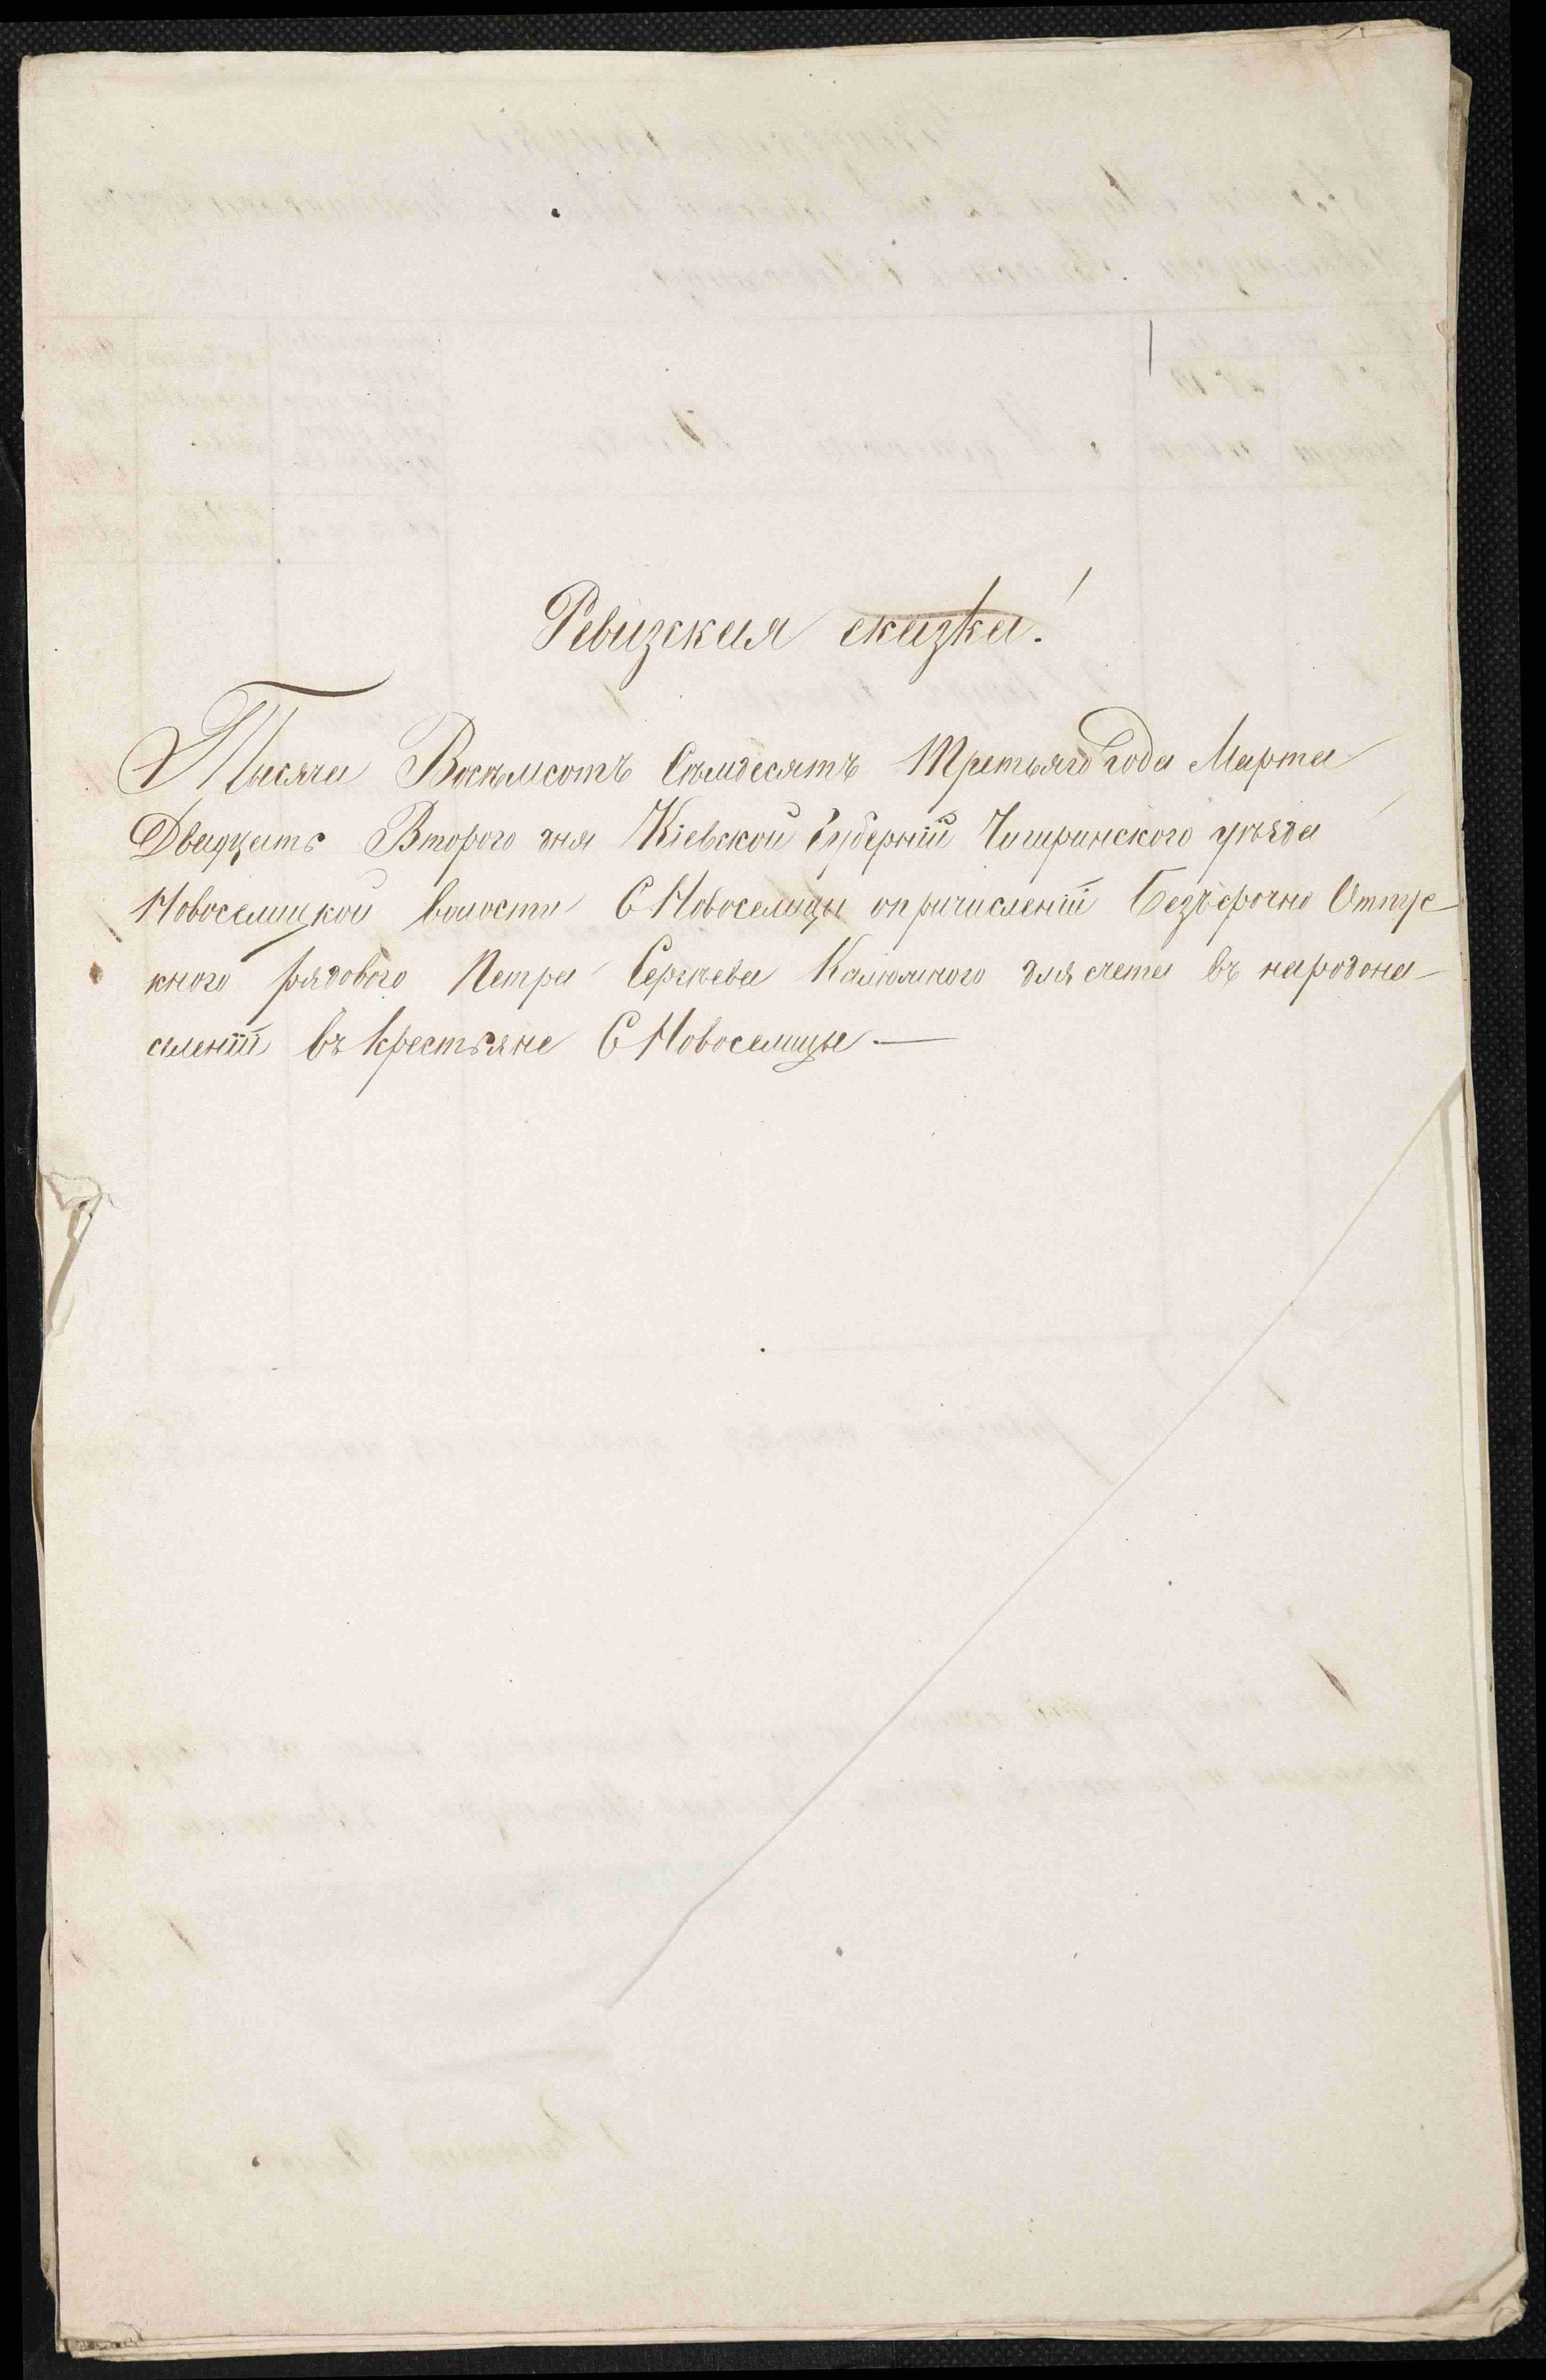 Ревизская сказка!
Тысяча Восѣмсотъ Сѣмдесятъ Третьяго Года Марта
Двадцать Второго дня Кіевской Губерніи Чигринского уѣзда
Новоселицкой волости С Новоселицы опричисленіи Безъсрочно Отпус
кного рядового Петра Сергѣева Калюжного для счета въ народона
селеніи въ Крестьяне С Новоселицы —